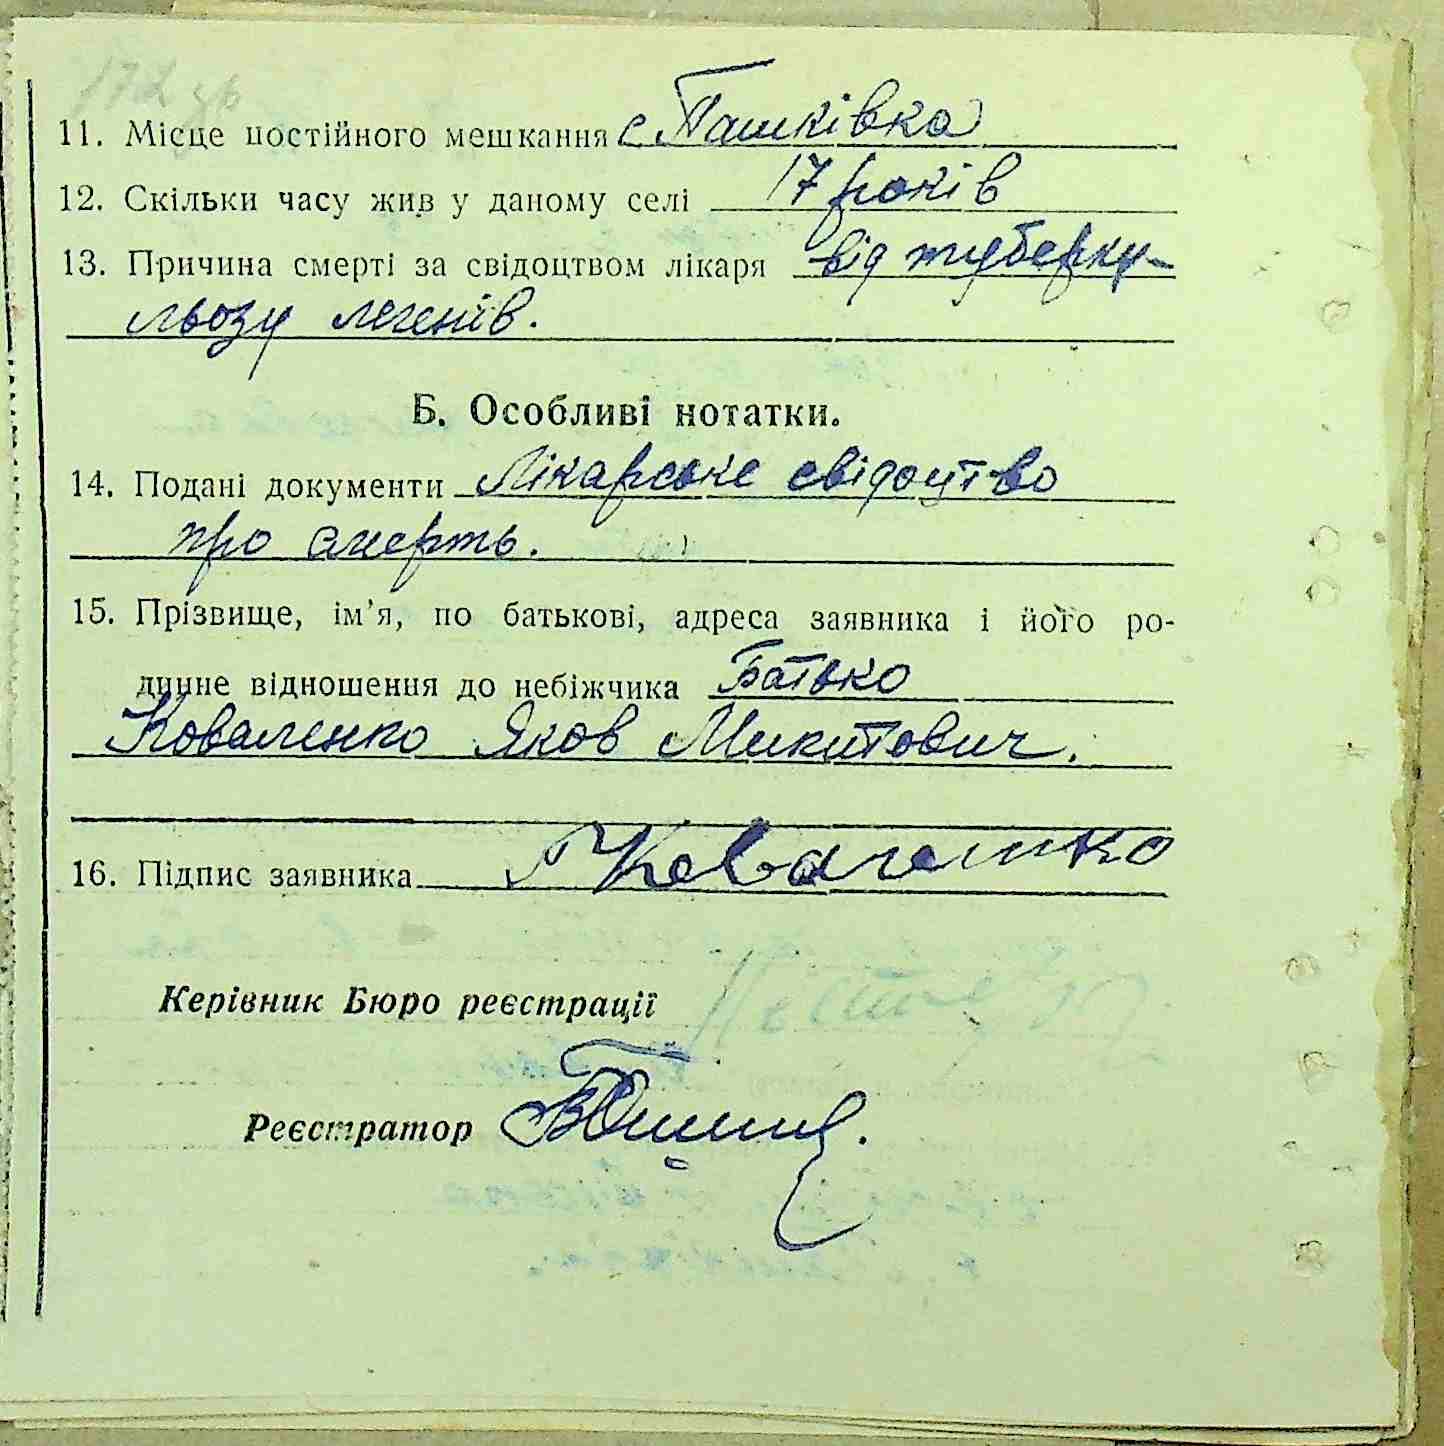 11. Місце постійного мешкання с. Пашківка
12. Скільки часу жив у даному селі 17 років
13. Причина смерті за свідоцтвом лікаря від туберку-
льозу легенів.
Б. Особливі нотатки.
14. Подані документи Лікарське свідоцтво
про смерть.
15. Прізвище, ім’я, по батькові, адреса заявника і його ро-
динне відношення до небіжчика Батько
Коваленко Яков Микитович.
16. Підпис заявника Коваленко
Керівник Бюро реєстрації
Реєстратор